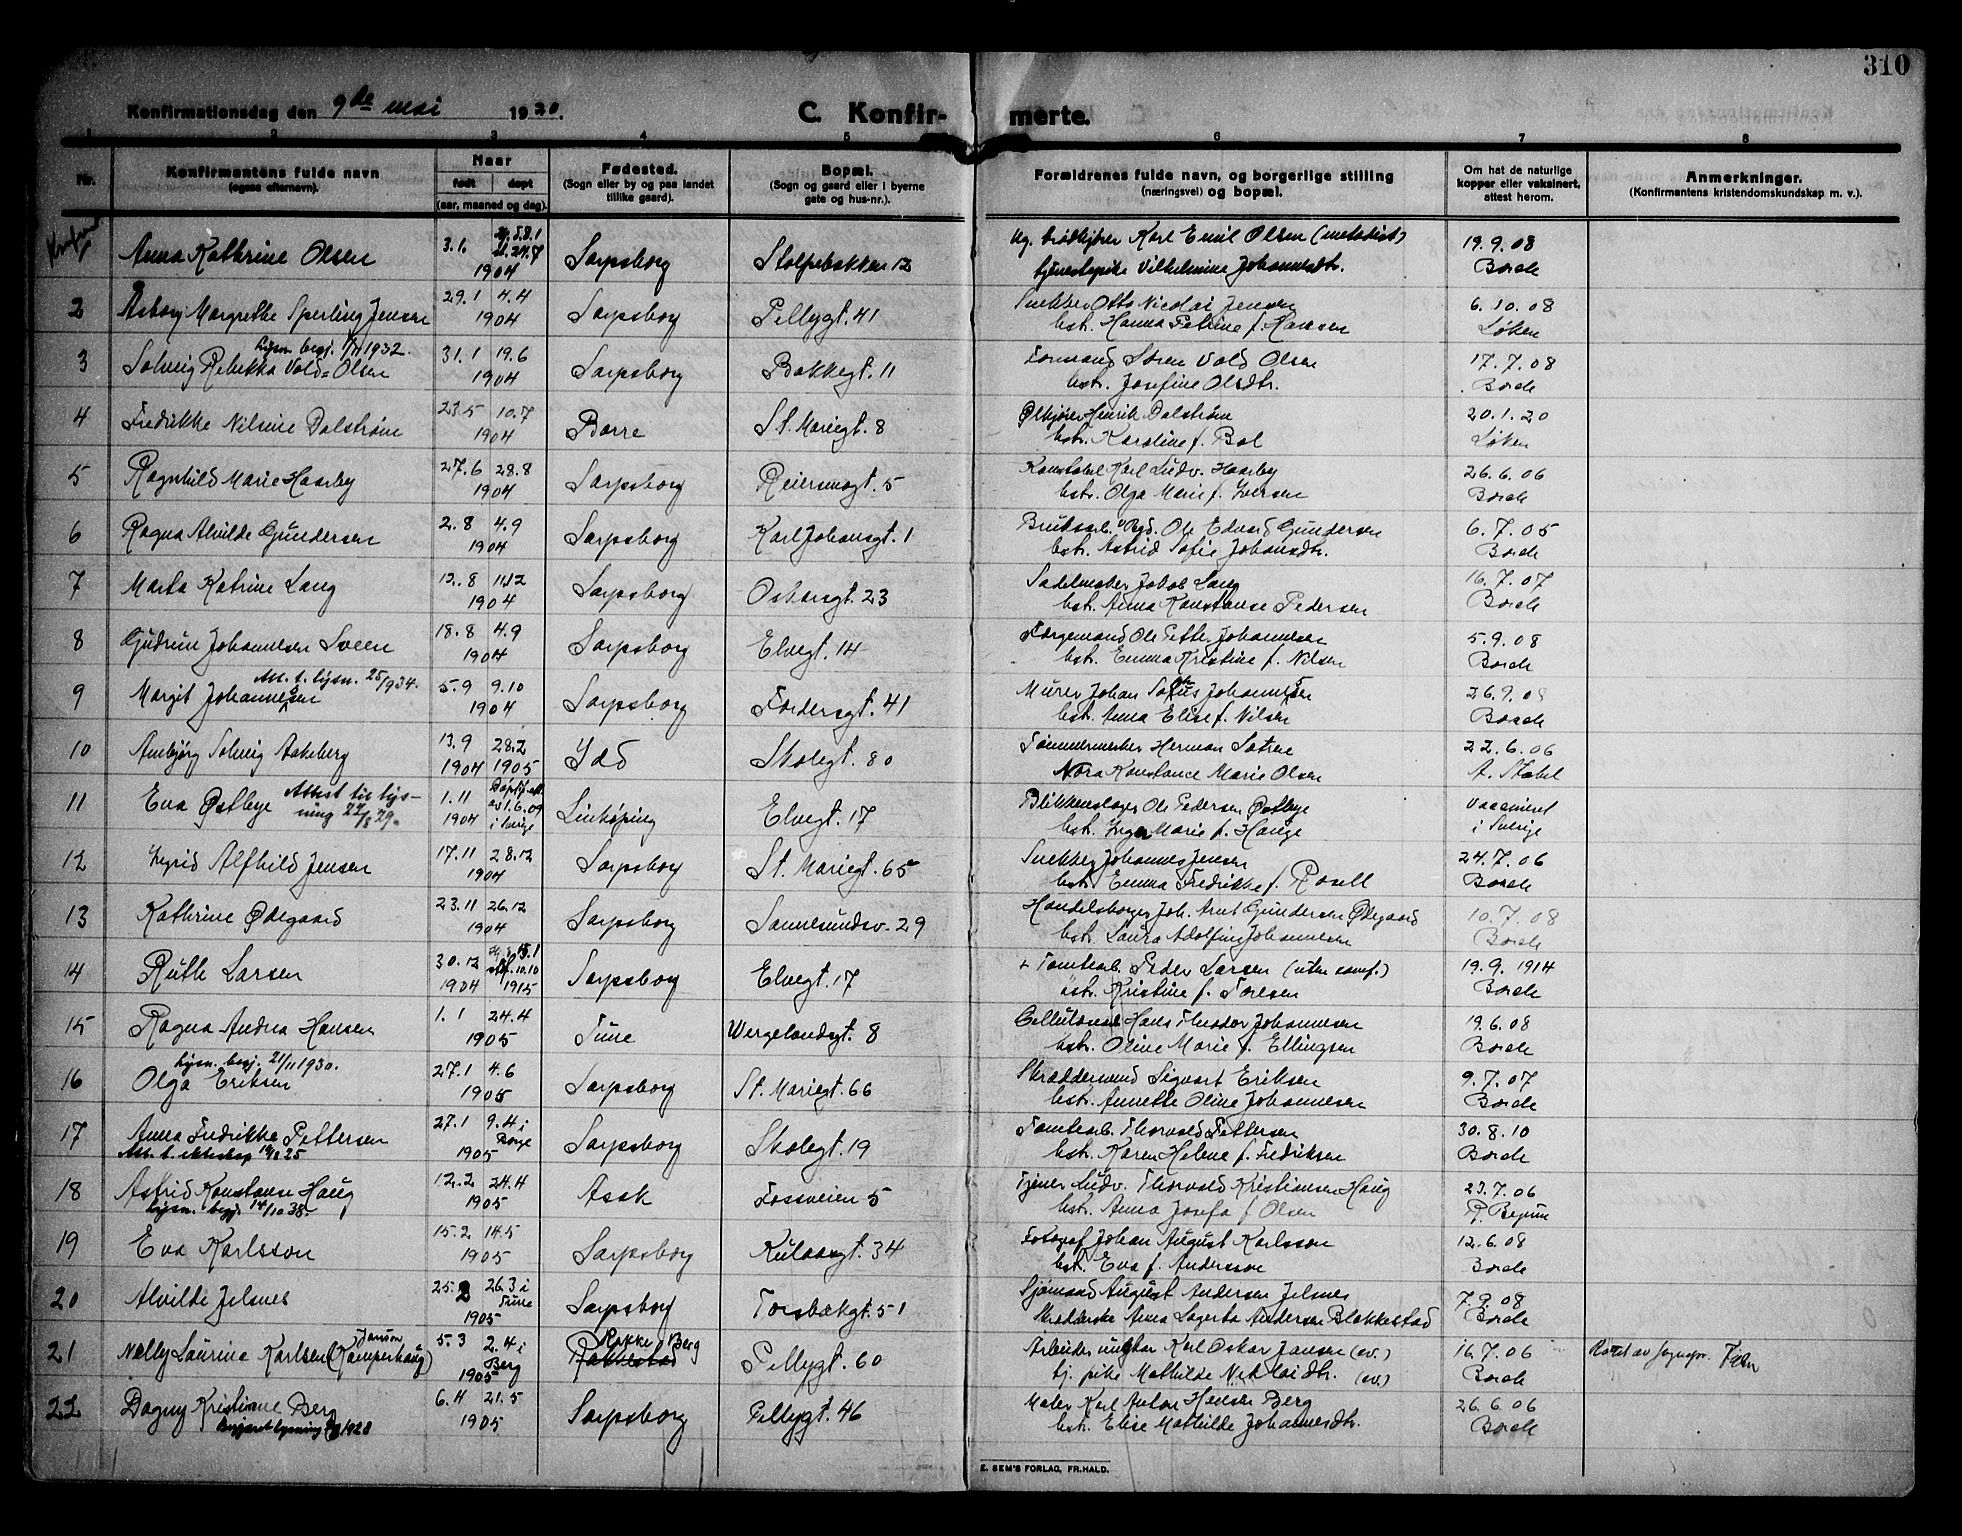 310
Konfirmationsdag den 9de mai 1920.
C. Konfirmerte.
1 2 3 4 5 6 7 8
Nr.
Konfirmantens fulde navn
(ogsaa efternavn).
Naar
født døpt
(aar, maaned og dag).
Fødested.
(Sogn eller by og paa landet
tillike gaard).
Bopæl.
(Sogn og gaard eller i byerne
gate og hus-nr.).
Forældrenes fulde navn, og borgerlige stilling
(næringsvei) og bopæl.
Om hat de naturlige
kopper eller vaksinert,
attest herom.
Anmerkninger.
(Konfirmantens kristendomskundskap m. v.).
Anna Kathrine Olsen 3.6 1904 Sarpsborg Stolpebakken 12 Karl Emil Olsen (metodist) 19.9.08
tjenestepike Vilhelmine Johannesdtr. Borch
2 Asborg Margrethe Sperling Jensen 29.1 4.4 1904 Sarpsborg Pellygt. 41 Snekker Otto Nicolai Jensen 6.10.08
hstr. Hanna Petrine f. Hansen Løken
3 Solveig Rebekka Vold-Olsen 31.1 19.6 1904 Sarpsborg Bakkegt. 11 Formand Søren Vold Olsen 17.7.08
lysn. begj. 1932.
hstr. Josefine Olsdtr. Borch
4 Fredrikke Nilsine Dalstrøm 23.5 10.7 1904 Borre St. Mariegt. 8 Ølkjører Henrik Dalstrøm 20.1.20
hstr. Karoline f. Bol Løken
5 Ragnhild Marie Haarby 27.6 28.8 1904 Sarpsborg Reiersensgt. 5 Konstabel Karl Ludv. Haarby 26.6.06
hstr. Olga Marie f. Iversen Borch
6 Ragna Alvilde Gundersen 2.8 4.9 1904 Sarpsborg Karl Johansgt. 1 Ole Edvard Gundersen 6.7.05
hstr. Astrid Sofie Johansdtr. Borch
7 Marta Katrine Lang 12.8 11.12 1904 Sarpsborg Oskarsgt. 23 Sadelmaker Jakob Lang 16.7.07
hstr. Anna Konstanse Pedersen Borch
8 Gudrun Johannesen Sveen 18.8 4.9 1904 Sarpsborg Elvegt. 14 Færgemand Ole Petter Johannesen 5.9.08
hstr. Emma Kristine f. Nilsen Borch
9 Margit Johannessen 5.9 9.10 1904 Sarpsborg Fordersgt. 41 Murer Johan Sofus Johannessen 26.9.08
Att. t. lysn. 25/9 34.
hstr. Anna Elise f. Nilsen Borch
10 Annbjørg Solveig Aakeberg 13.9 1904 28.2 1905 Idd Skolegt. 80 Tømmermerker Herman Sætre 22.6.06
Nora Konstance Marie Olsen A. Stabel
11 Eva Østbye 1.11 1904 Linköping Elvegt. 17 Blikkenslager Ole Pedersen Østbye Vaccineret
Attest til lysning 22/8 29.
1.6.09 i Sverige
hstr. Inga Marie f. Hauge i Sverige
12 Ingrid Alfhild Jensen 17.11 28.12 1904 Sarpsborg St. Mariegt. 65 Snekker Johannes Jensen 24.7.06
hstr. Emma Fredrikke f. Rosell Borch
13 Kathrine Ødegaard 23.11 26.12 1904 Sarpsborg Sannesundsv. 29 Handelsborger Joh. Arnt Gundersen Ødegaard 10.7.08
hstr. Laura Adolfine Johannesen Borch
14 Ruth Larsen 30.12 1904 10.10 1915 Sarpsborg Elvegt. 17 + Tomtearb. Peder Larsen (uten konf.) 19.9.1914
hstr. Kristine f. Torlsen Borch
15 Ragna Andrea Hansen 1.1 24.4 1905 Tune Wergelandsgt. 8 Hans Theodor Johannesen 19.6.08
hstr. Oline Marie f. Ellingsen Borch
16 Olga Eriksen 27.1 4.6 1905 Sarpsborg St. Mariegt. 66 Skræddersvend Sigvart Eriksen 9.7.07
lysn. begj. 21/11 1930.
hstr. Annette Oline Johannesen Borch
17 Anna Fredrikke Pettersen 27.1 9.4 i Borge 1905 Sarpsborg Skolegt. 19 Tomtearb. Thorvald Pettersen 30.8.10
Att. t. ekteskap 25
hstr. Karen Helene f. Fredriksen Borch
18 Astrid Konstanse Haug 12.2 24.4 1905 Asak Fossveien 5 Tjener Ludv. Thorvald Kristiansen Haug 23.7.06
lysn. begj. 14/10 38.
hstr. Anna Josefa f. Olsen
19 Eva Karlsson 15.2 14.5 1905 Sarpsborg Kulaasgt. 34 Fotograf Johan August Karlsson 12.6.08
hstr. Eva f. Andersson Borch
20 Alvilde Jelsnes 25.2 26.3 i Tune 1905 Sarpsborg Torsbækgt. 51 Sjømand August Andersen Jelsnes 7.9.08
Skrædderske Anna Lagerta Andersen Blakkestad Borch
21 Nelly Laurine Karlsen (Kamperhaug) 5.3 2.4 i Berg 1905 Rokke, Berg Pellygt. 60 Arbeider ungkar Karl Oskar Jansen (ev.) 16.7.06
Janson
Rakkestad
tj. pike Mathilde Nikolaidtr. (ev.) Borch
22 Dagny Kristiane Berg 6.4 21.5 1905 Sarpsborg Pellygt. 46 Maler Karl Anton Hansen Berg 26.6.06
Begjæret lysning 1928
hstr. Elise Mathilde Johannesdtr. Borch
E. SEM'S FORLAG, FR.HALD.